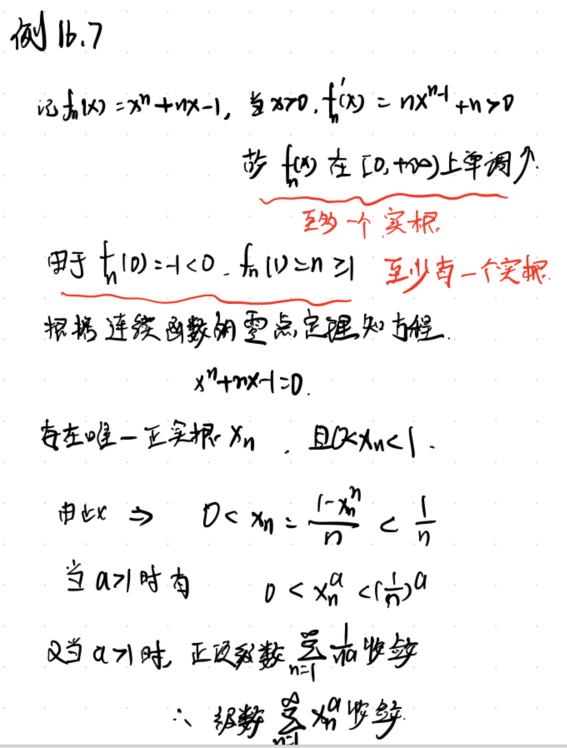 例 16.7
记 fₙ(x) = xⁿ + nx - 1, 当 x>0, fₙ'(x) = nxⁿ⁻¹ + n > 0
故 fₙ(x) 在 [0, +∞) 上单调↑
至多一个实根.
由于 fₙ(0) = -1 < 0. fₙ(1) = n ≥ 1 至少有一个实根.
根据连续函数的零点定理知方程.
xⁿ + nx - 1 = 0.
存在唯一正实根 xₙ , 且 0 < xₙ < 1.
由 ⇒ 0 < xₙ = (1 - xₙⁿ)/n < 1/n
当 a>1 时有 0 < xₙᵃ < (1/n)ᵃ
又当 a>1 时, 正项级数 ∑_{n=1}^{∞} 1/nᵃ 收敛
∴ 级数 ∑_{n=1}^{∞} xₙᵃ 收敛.